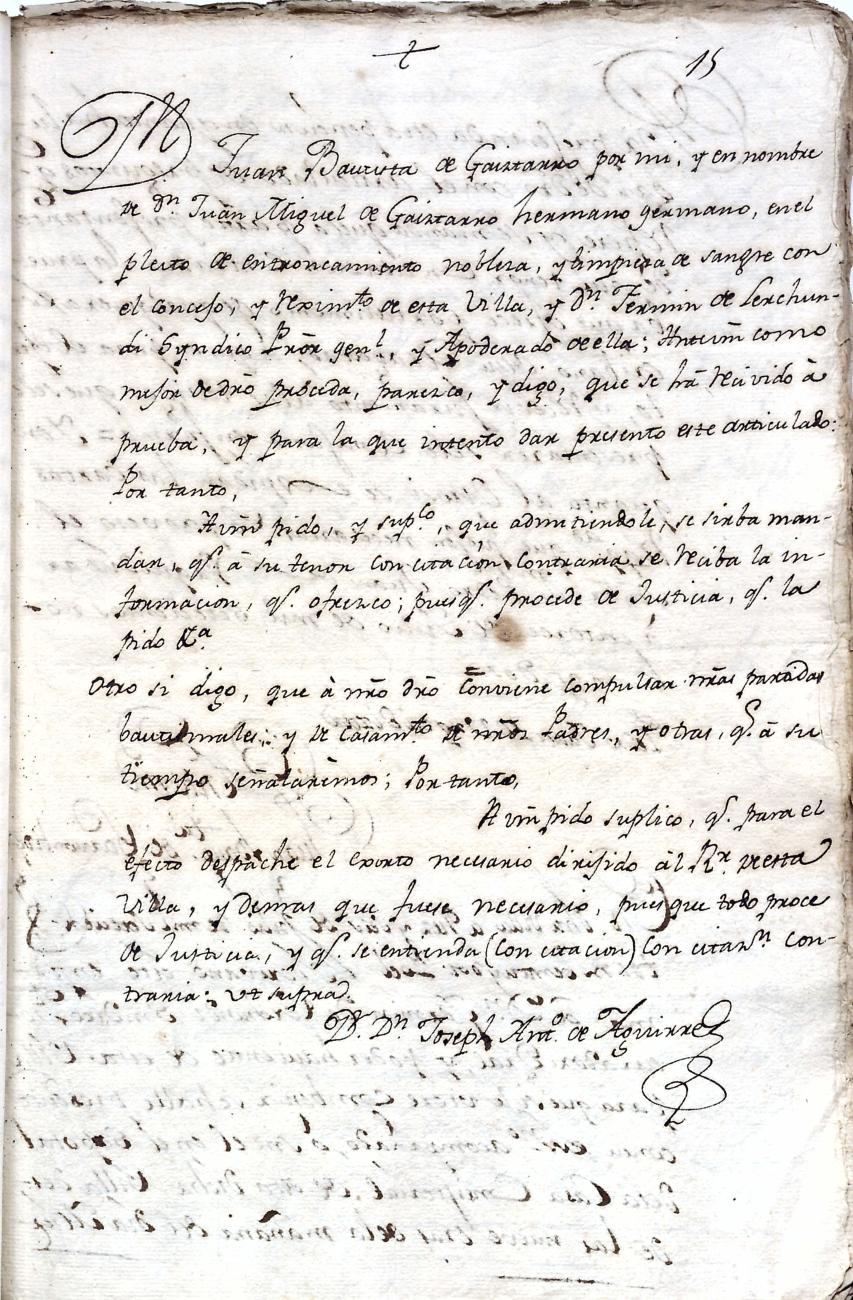 15
Juan Bautista de Gaiztarro por mi, y en nombre
de Dn Juan Miguel de Gaiztarro hermano germano, en el
pleito de entroncamiento nobleza, y limpieza de sangre con
el concejo, y vezimto de esta Villa, y Dn Fermin de Lerchun-
di Syndico Pror genl, y Apoderado de ella; Ante vm como
mejor de dro proceda, parezco, y digo, que se há recivido â
prueba, y para la que intento dar presento este articulado:
Por tanto,
A vm pido, y supco, que admitiendole, se sirba man-
dar, q. â su tenor con citacion contraria se reciba la in-
formacion, q. ofrezco; pues q. procede de Justicia, q. la
pido &a
Otro si digo, que â nro dro conviene compulsar nras partidas
bautismales, y de casamto de nros Padres, y otras, q. â su
tiempo señalaremos; Por tanto,
A vm pido suplico, q. para el
efecto despache el exorto necesario dirijido âl Rr. de esta
Villa, y demas que fuese necesario, pues que todo proce
de Justicia, y q. se entienda (con citacion) con citazn con-
traria: ut supra
Dr. Dn Joseph Anto. de Aguirre